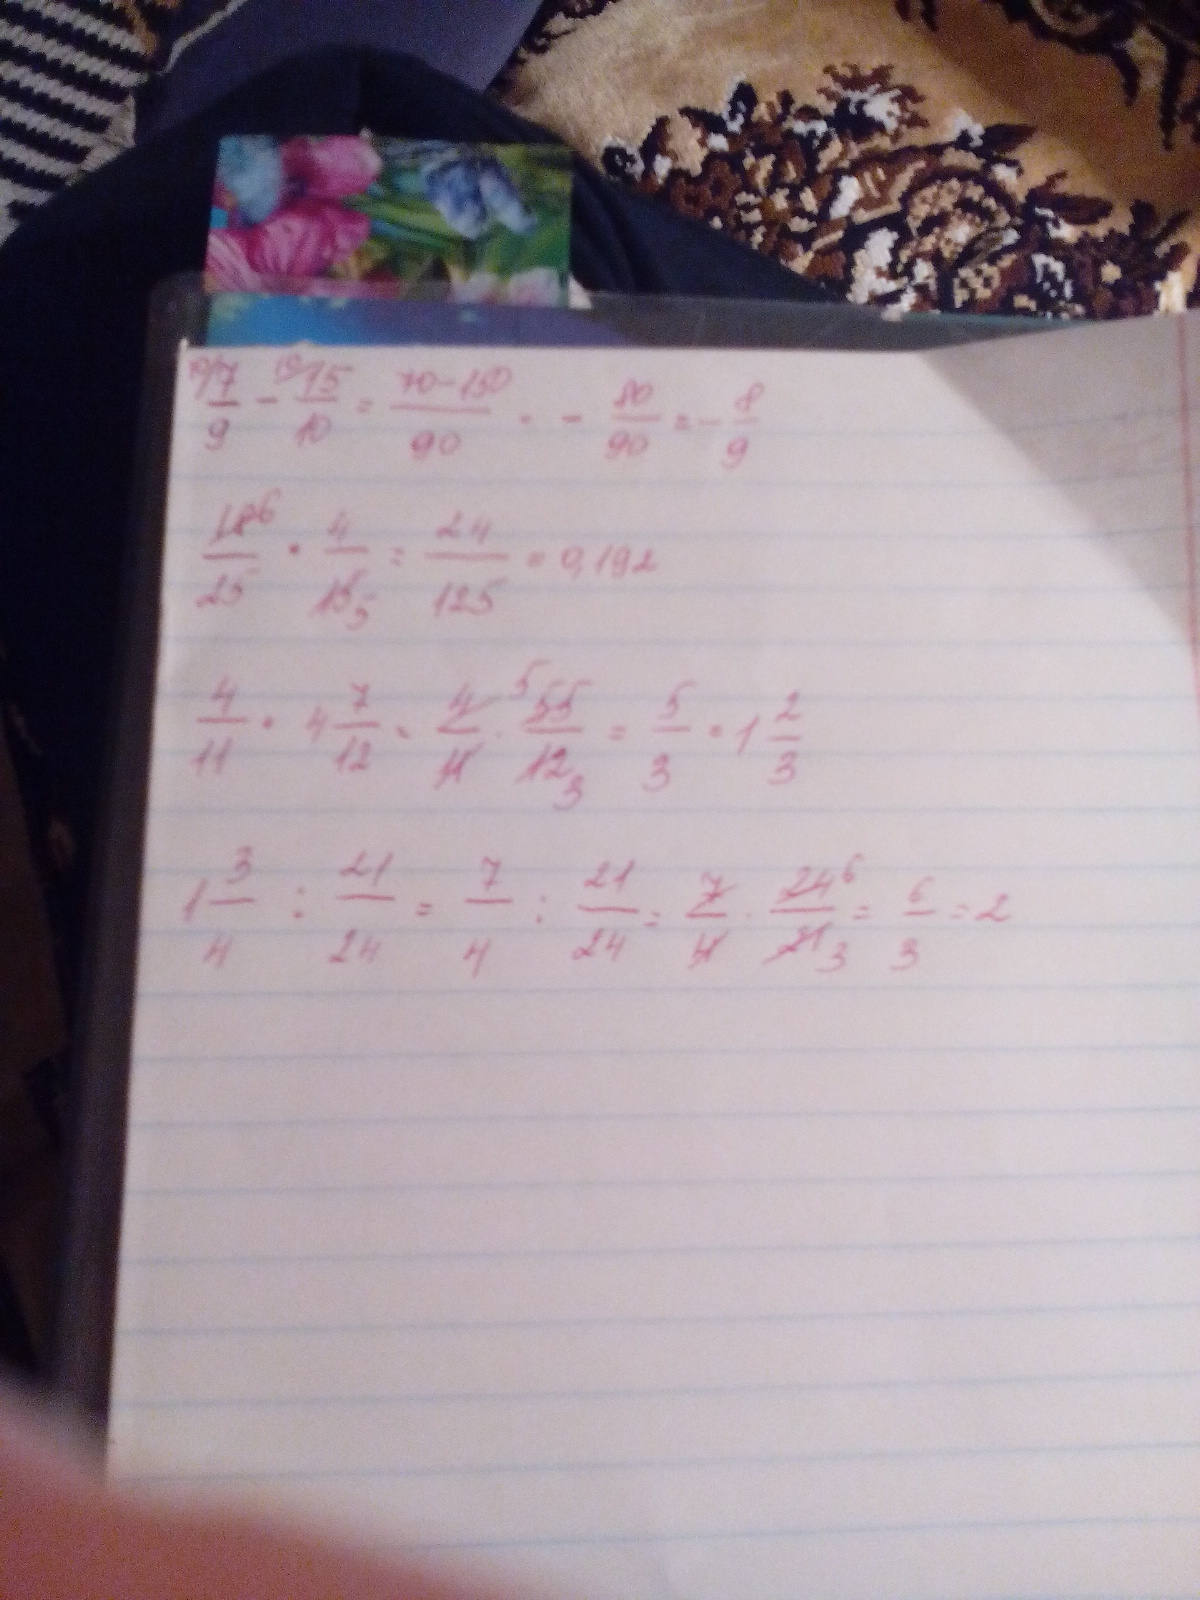 10/7/9 - 10/15/10 = 70-150/90 = - 80/90 = - 8/9
18 6/25 · 4/15 5 = 24/125 = 0,192
4/11 · 4 7/12 = 4/11 · 5 55/12 3 = 5/3 = 1 2/3
1 3/4 : 21/24 = 7/4 : 21/24 = 7/4 · 24 6/21 3 = 6/3 = 2